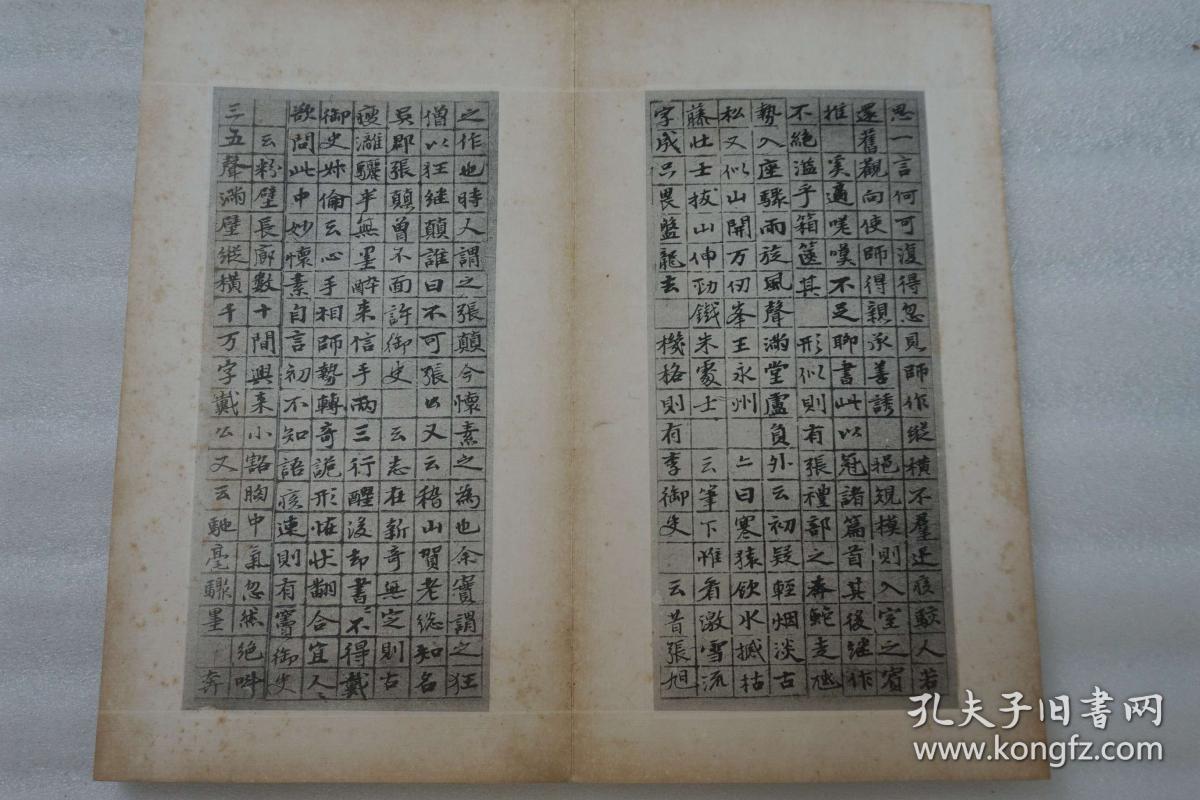 思一言何可復得忽見師作縱橫不羣迅疾駭人若
還舊觀向使師得親承善誘 挹規模則入室之賓
推 奚適嗟嘆不足聊書此以冠諸篇首其後继作
不絕溢乎箱篋其 形似則有張禮部之奔蛇走虺
勢入座驟雨旋風聲滿堂盧負外云初疑輕烟淡古
松又似山開万仞峯王永州 曰寒猿飲水撼枯
藤壮士拔山伸劲鐵朱處士 云筆下惟看激電流
字成只畏盤龍去 機格則有李御史 云昔張旭
之作也時人謂之張顛今懷素之為也余實謂之狂
僧以狂继顛誰曰不可張公又云稽山賀老總知名
吳郡張顛曾不面許御史 云志在新奇無定則古
瘦灕驪半無墨醉來信手兩三行醒後却書不得戴
御史叔倫云心手相師勢轉奇詭形怪狀翻合宜人
欲問此中妙懷素自言初不知語疾速則有竇御史
云粉壁長廊數十間興來小豁胸中氣忽然絕叫
三五聲滿壁縱橫千万字戴公又云馳毫驟墨 奔
孔夫子旧書网
www.kongfz.com